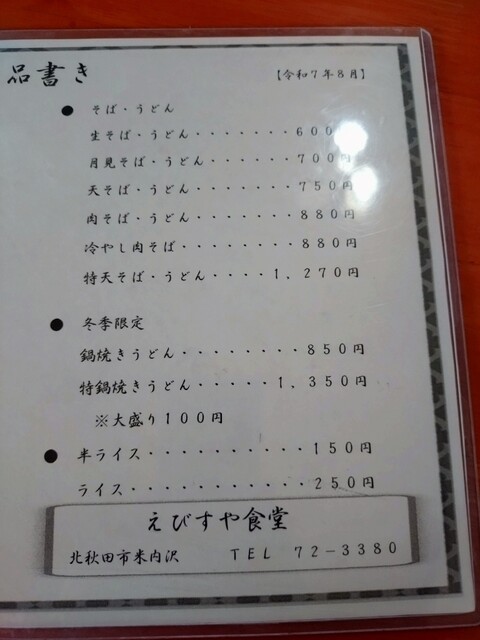 品書き
【令和7年8月】
● そば・うどん
生そば・うどん・・・・・・・600
月見そば・うどん・・・・・・700円
天そば・うどん・・・・・・・750円
肉そば・うどん・・・・・・・880円
冷やし肉そば・・・・・・・・880円
特天そば・うどん・・・・1,270円
● 冬季限定
鍋焼きうどん・・・・・・・・850円
特鍋焼きうどん・・・・・1,350円
※大盛り100円
● 半ライス・・・・・・・・・・150円
ライス・・・・・・・・・・・250円
えびすや食堂
北秋田市米内沢 TEL 72-3380